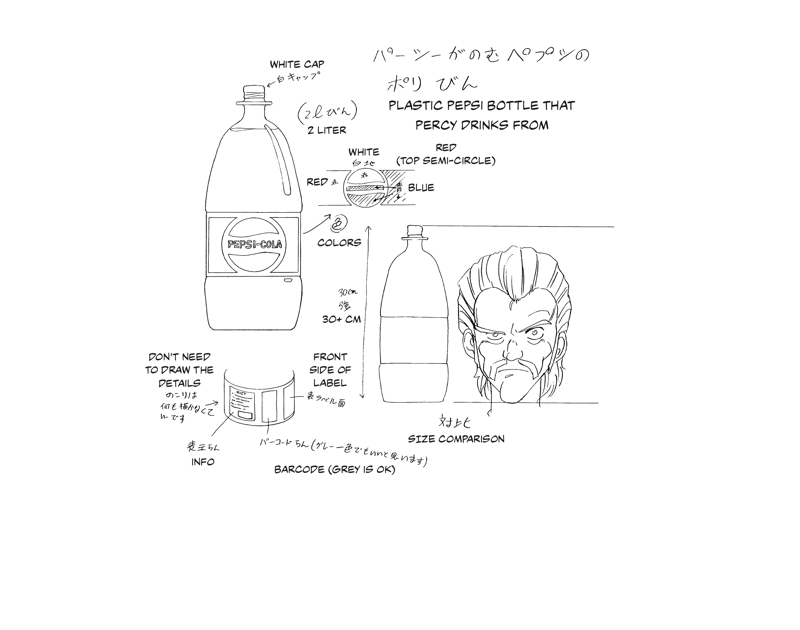 パーシーがのむペプシの
ポリ びん
PLASTIC PEPSI BOTTLE THAT
PERCY DRINKS FROM
WHITE CAP
白キャップ
(2ℓびん)
2 LITER
WHITE
白地
RED
(TOP SEMI-CIRCLE)
RED 赤
赤
青
BLUE
色
COLORS
PEPSI-COLA
30cm
強
30+ CM
DON'T NEED
TO DRAW THE
DETAILS
のこりは
何も描かなくて
いいです
FRONT
SIDE OF
LABEL
表ラベル面
INFO
バーコードらん(グレー一色でもいいと思います)
BARCODE (GREY IS OK)
対比
SIZE COMPARISON